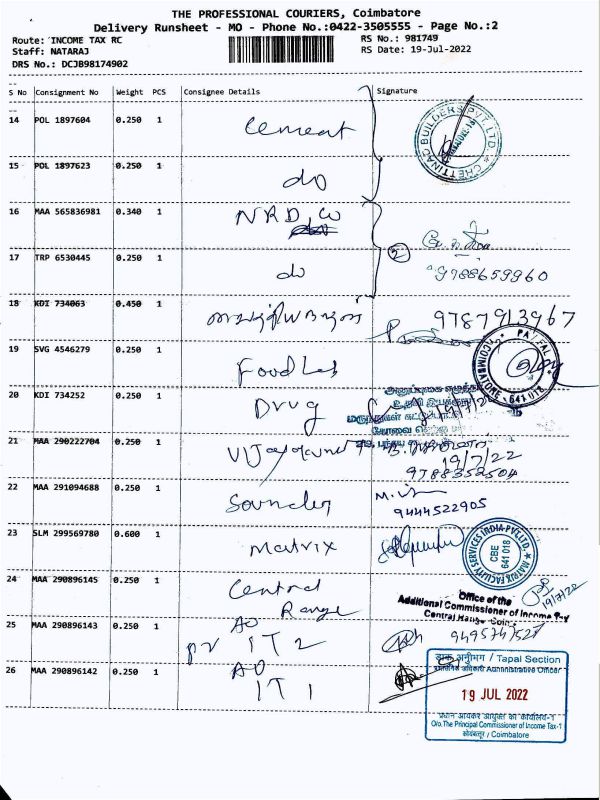 THE PROFESSIONAL COURIERS, Coimbatore
Delivery Runsheet - MO - Phone No.:0422-3505555 - Page No.:2
Route: INCOME TAX RC
RS No.: 981749
Staff: NATARAJ
RS Date: 19-Jul-2022
DRS No.: DCJB98174902
S No Consignment No Weight PCS Consignee Details Signature
14 POL 1897604 0.250 1 Cement
CHETTINAD BUILDERS PVT. LTD.
15 POL 1897623 0.250 1 do
16 MAA 565836981 0.340 1 NRD
17 TRP 6530445 0.250 1 do
2
9788659960
18 KDI 734063 0.450 1
9787913967
19 SVG 4546279 0.250 1 Food Lab
COIMBATORE 641 018
20 KDI 734252 0.250 1 Drug
19/7/22
21 MAA 290222704 0.250 1
19/7/22
9788352504
22 MAA 291094688 0.250 1 Sounder
9444522905
23 SLM 299569780 0.600 1 Matrix
MATRIX FACILITY SERVICES INDIA PVT LTD.
CBE
641 018
24 MAA 290896145 0.250 1 Central
Range
19/7/22
Office of the
Additional Commissioner of Income Tax
Central Range
25 MAA 290896143 0.250 1 AO
IT 2
26 MAA 290896142 0.250 1 AO
IT 1
डाक अनुभाग / Tapal Section
Administrative Officer
19 JUL 2022
प्रधान आयकर आयुक्त का कार्यालय-1
O/o.The Principal Commissioner of Income Tax-1
कोयंबत्तूर / Coimbatore